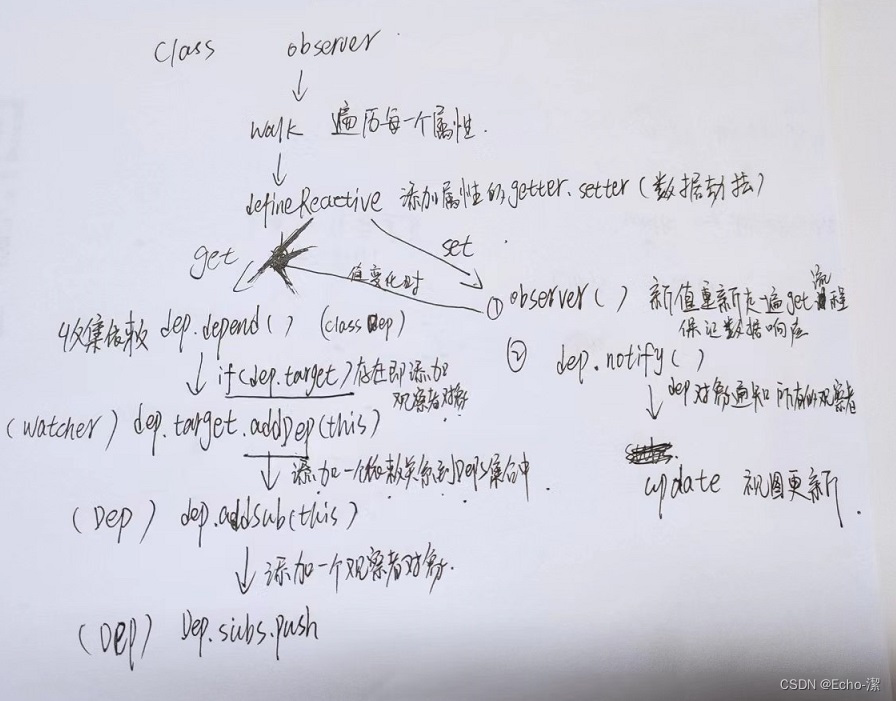 class observer
walk 遍历每一个属性.
defineReactive 添加属性的getter.setter(数据劫持)
get
set
值变化时
① observer() 新值重新走一遍get流程
保证数据响应
收集依赖 dep.depend() (class Dep)
② dep.notify()
if(dep.target)存在即添加
观察者对象
dep对象通知所有的观察者
(watcher) dep.target.addDep(this)
添加一个依赖关系到Deps集合中.
update 视图更新.
(Dep) dep.addsub(this)
添加一个观察者对象.
(Dep) Dep.subs.push
CSDN @Echo-潔